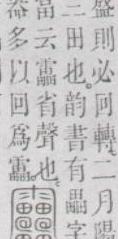 盛則必回轉二月陽
三田也韵書有畾字
當云靁省聲也
器多以回爲靁